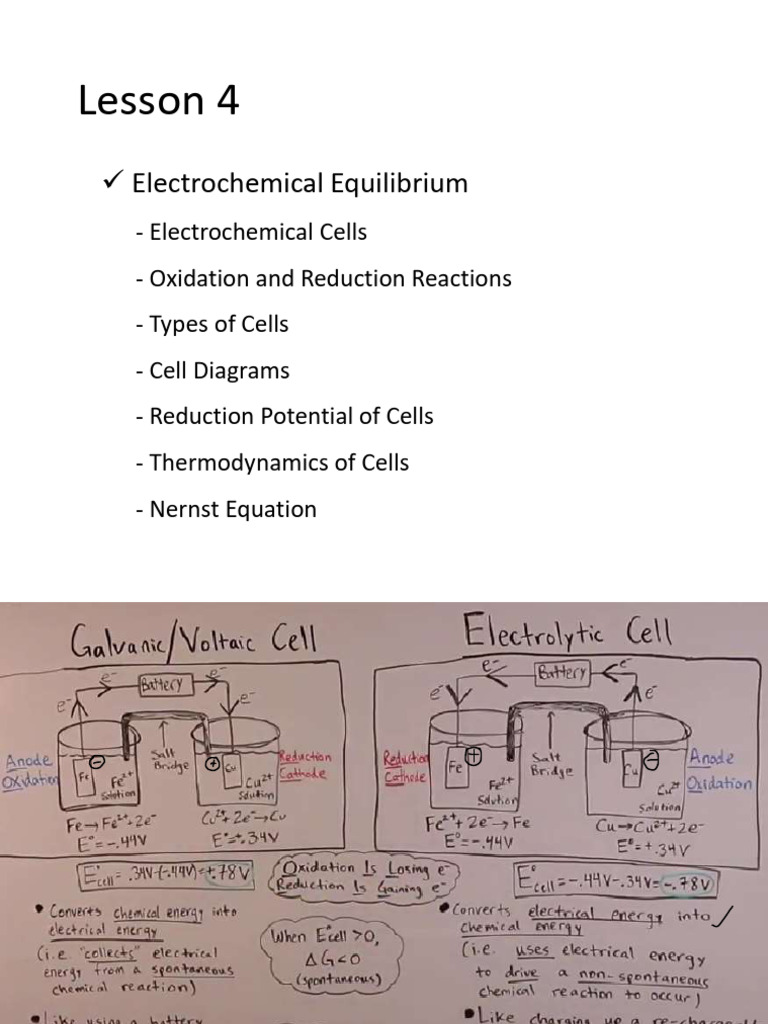 Lesson 4
✓ Electrochemical Equilibrium
- Electrochemical Cells
- Oxidation and Reduction Reactions
- Types of Cells
- Cell Diagrams
- Reduction Potential of Cells
- Thermodynamics of Cells
- Nernst Equation
Galvanic/Voltaic Cell
e⁻ Battery e⁻
e⁻ e⁻
Anode
Oxidation
Salt
Bridge
Reduction
Cathode
− Fe Fe²⁺ Solution
+ Cu Cu²⁺ Solution
Fe→Fe²⁺+2e⁻
E°=-.44V
Cu²⁺+2e⁻→Cu
E°=+.34V
E°cell=.34V-(-.44V)=+.78V
• Converts chemical energy into
electrical energy
(i.e "collects" electrical
energy from a spontaneous
chemical reaction)
• Like using a battery
Oxidation Is Losing e⁻
Reduction Is Gaining e⁻
When E°cell >0,
ΔG<0
(spontaneous)
Electrolytic Cell
e⁻ Battery e⁻
e⁻ e⁻
Reduction
Cathode
Salt
Bridge
Anode
Oxidation
Fe + Fe²⁺ Solution
Cu − Cu²⁺ Solution
Fe²⁺+2e⁻→Fe
E°=-.44V
Cu→Cu²⁺+2e⁻
E°=+.34V
E°cell=-.44V-.34V=-.78V
• Converts electrical energy into
chemical energy
(i.e. uses electrical energy
to drive a non-spontaneous
chemical reaction to occur)
• Like charging up a